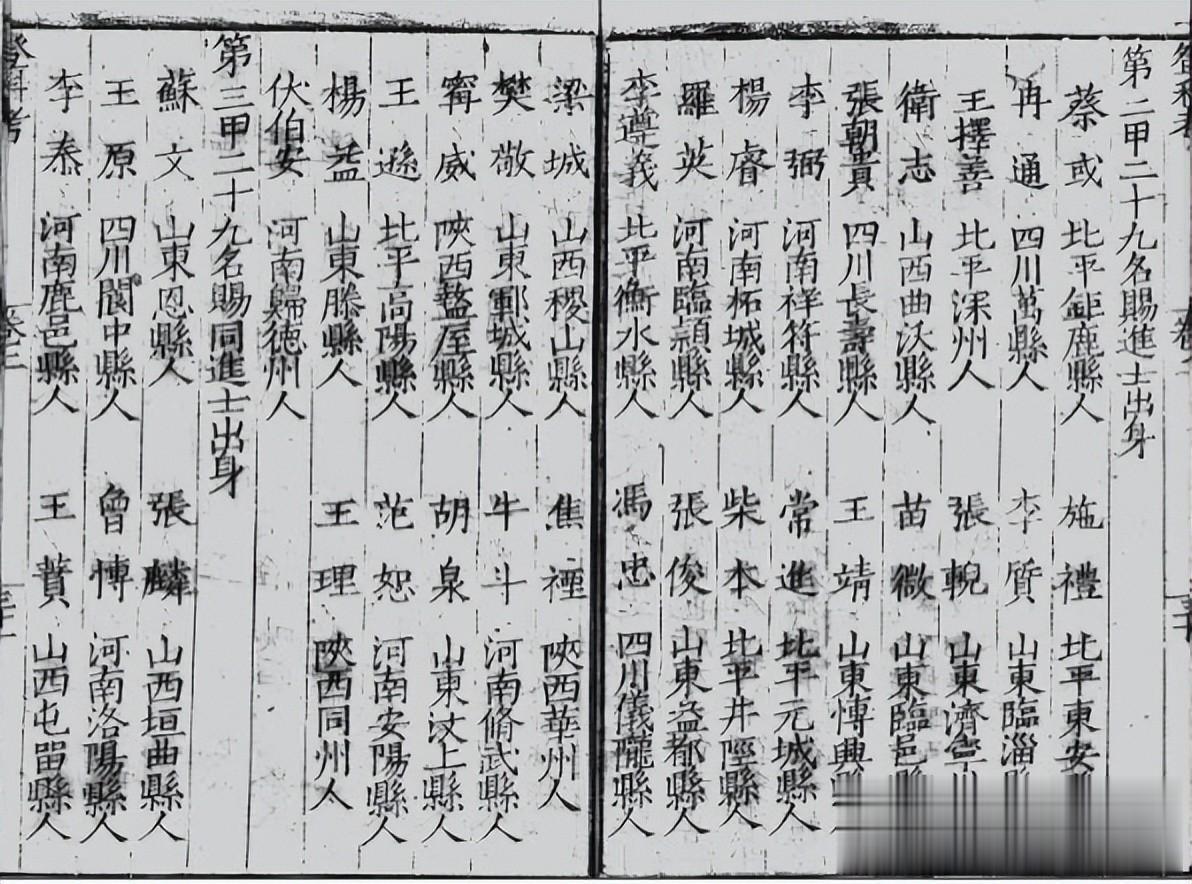 第二甲二十九名賜進士出身
蔡或 北平鉅鹿縣人 施禮 北平東安
冉通 四川萬縣人 李質 山東臨淄
王擇善 北平深州人 張輗 山東濟寧
衛志 山西曲沃縣人 苗微 山東臨邑
張朝貴 四川長壽縣人 王靖 山東博興
李弼 河南祥符縣人 常進 北平元城縣人
楊睿 河南柘城縣人 柴本 北平井陘縣人
羅英 河南臨潁縣人 張俊 山東益都縣人
李遵義 北平衡水縣人 馮忠 四川儀隴縣人
梁城 山西稷山縣人 焦禋 陝西華州人
樊敬 山東鄆城縣人 牛斗 河南脩武縣人
甯威 陝西盩厔縣人 胡泉 山東汶上縣人
王遜 北平高陽縣人 范恕 河南安陽縣人
楊益 山東滕縣人 王理 陝西同州人
伏伯安 河南歸德州人
第三甲二十九名賜同進士出身
蘇文 山東恩縣人 張麟 山西垣曲縣人
王原 四川閬中縣人 曾博 河南洛陽縣人
李泰 河南鹿邑縣人 王蕡 山西屯留縣人
登科考